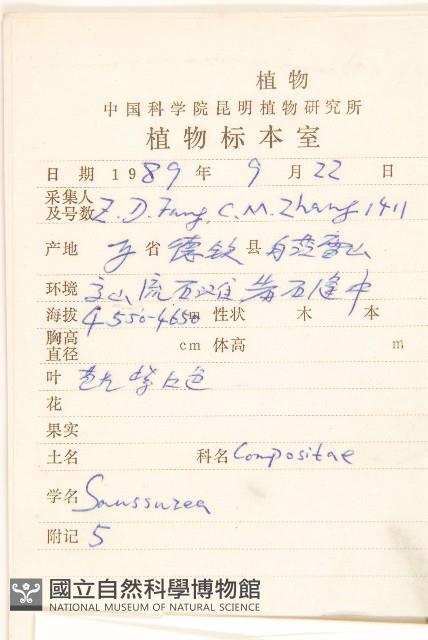 植物
中国科学院昆明植物研究所
植物标本室
日 期 1989 年 9 月 22 日
采集人及号数 Z. D. Fang, C. M. Zhang 1411
产地 省 德钦 县 白茫雪山
环境 高山流石滩 岩石缝中
海拔 4550-4650 m 性状 木 本
胸高直径 cm 体高 m
叶 紫红色
花
果实
土名 科名 Compositae
学名 Saussurea
附记 5
國立自然科學博物館
NATIONAL MUSEUM OF NATURAL SCIENCE